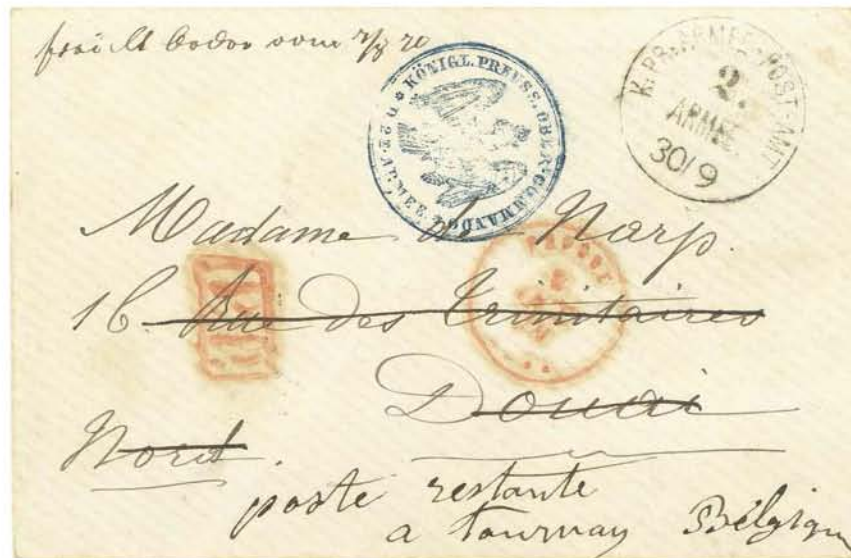 vom 7/8 70
KÖNIGL. PREUSS. OBER-COMMANDO D 2T ARMEE
K.PR.ARMEE-POST-AMT
2.
ARMEE
30/9
Madame de Narp.
16 Rue des Trinitaires
Douai
Nord
poste restante
a Tournay Belgique